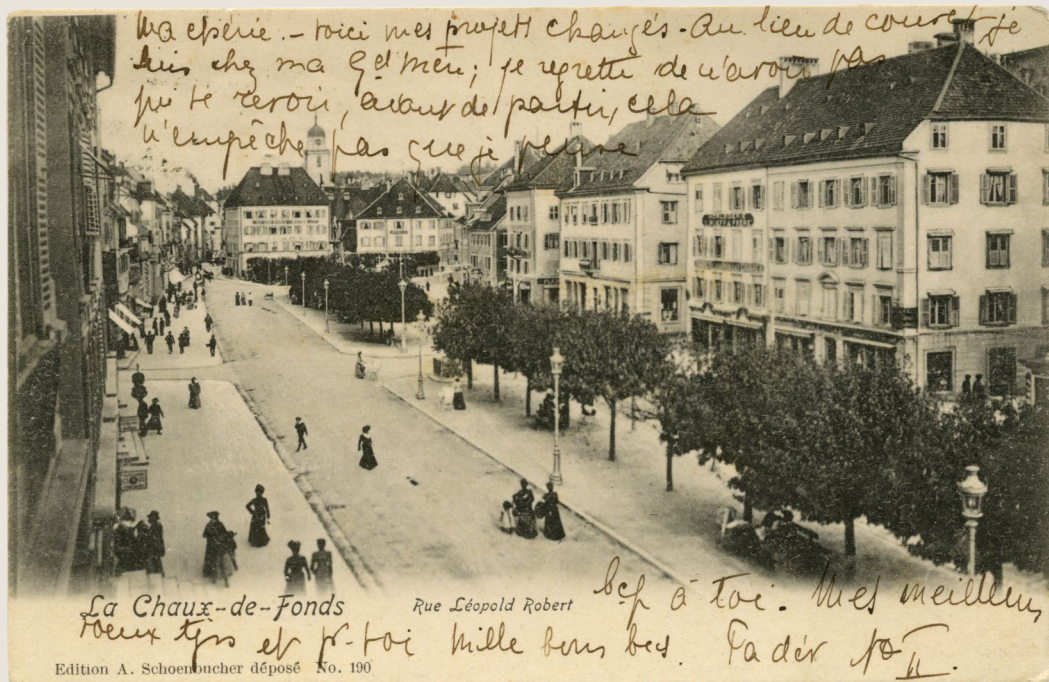 Ma chérie. - voici mes projets changés. Au lieu de couvet je
suis chez ma Gd mère; je regrette de n'avoir pas
pu te revoir, avant de partir, cela
n'empêche pas que je pense
bcp à toi. Mes meilleurs
La Chaux-de-Fonds Rue Léopold Robert
voeux tjrs et pr toi mille bons becs.
Edition A. Schoenbucher déposé No. 190